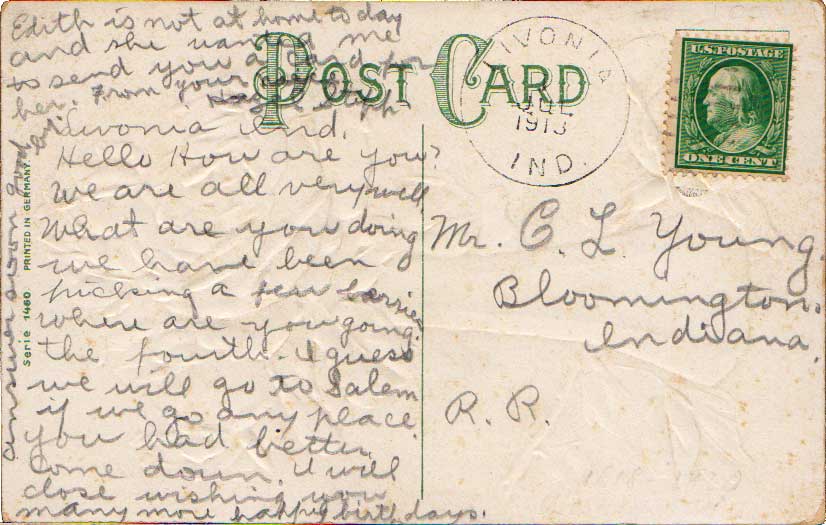 Edith is not at home today
and she wanted me
to send you a card for
her. From your
Livonia Ind.
Hello How are you?
We are all very well
What are you doing
we have been
picking a few berries
where are you going
the fourth. I guess
we will go to Salem
if we go any place.
you had better
come down. I will
close wishing you
many more happy birthdays.
answer soon good
POST CARD
LIVONIA
JUL
1913
IND.
U.S. POSTAGE
ONE CENT
Mr. C. L. Young.
Bloomington.
Indiana.
R. R.
Serie 1460 PRINTED IN GERMANY